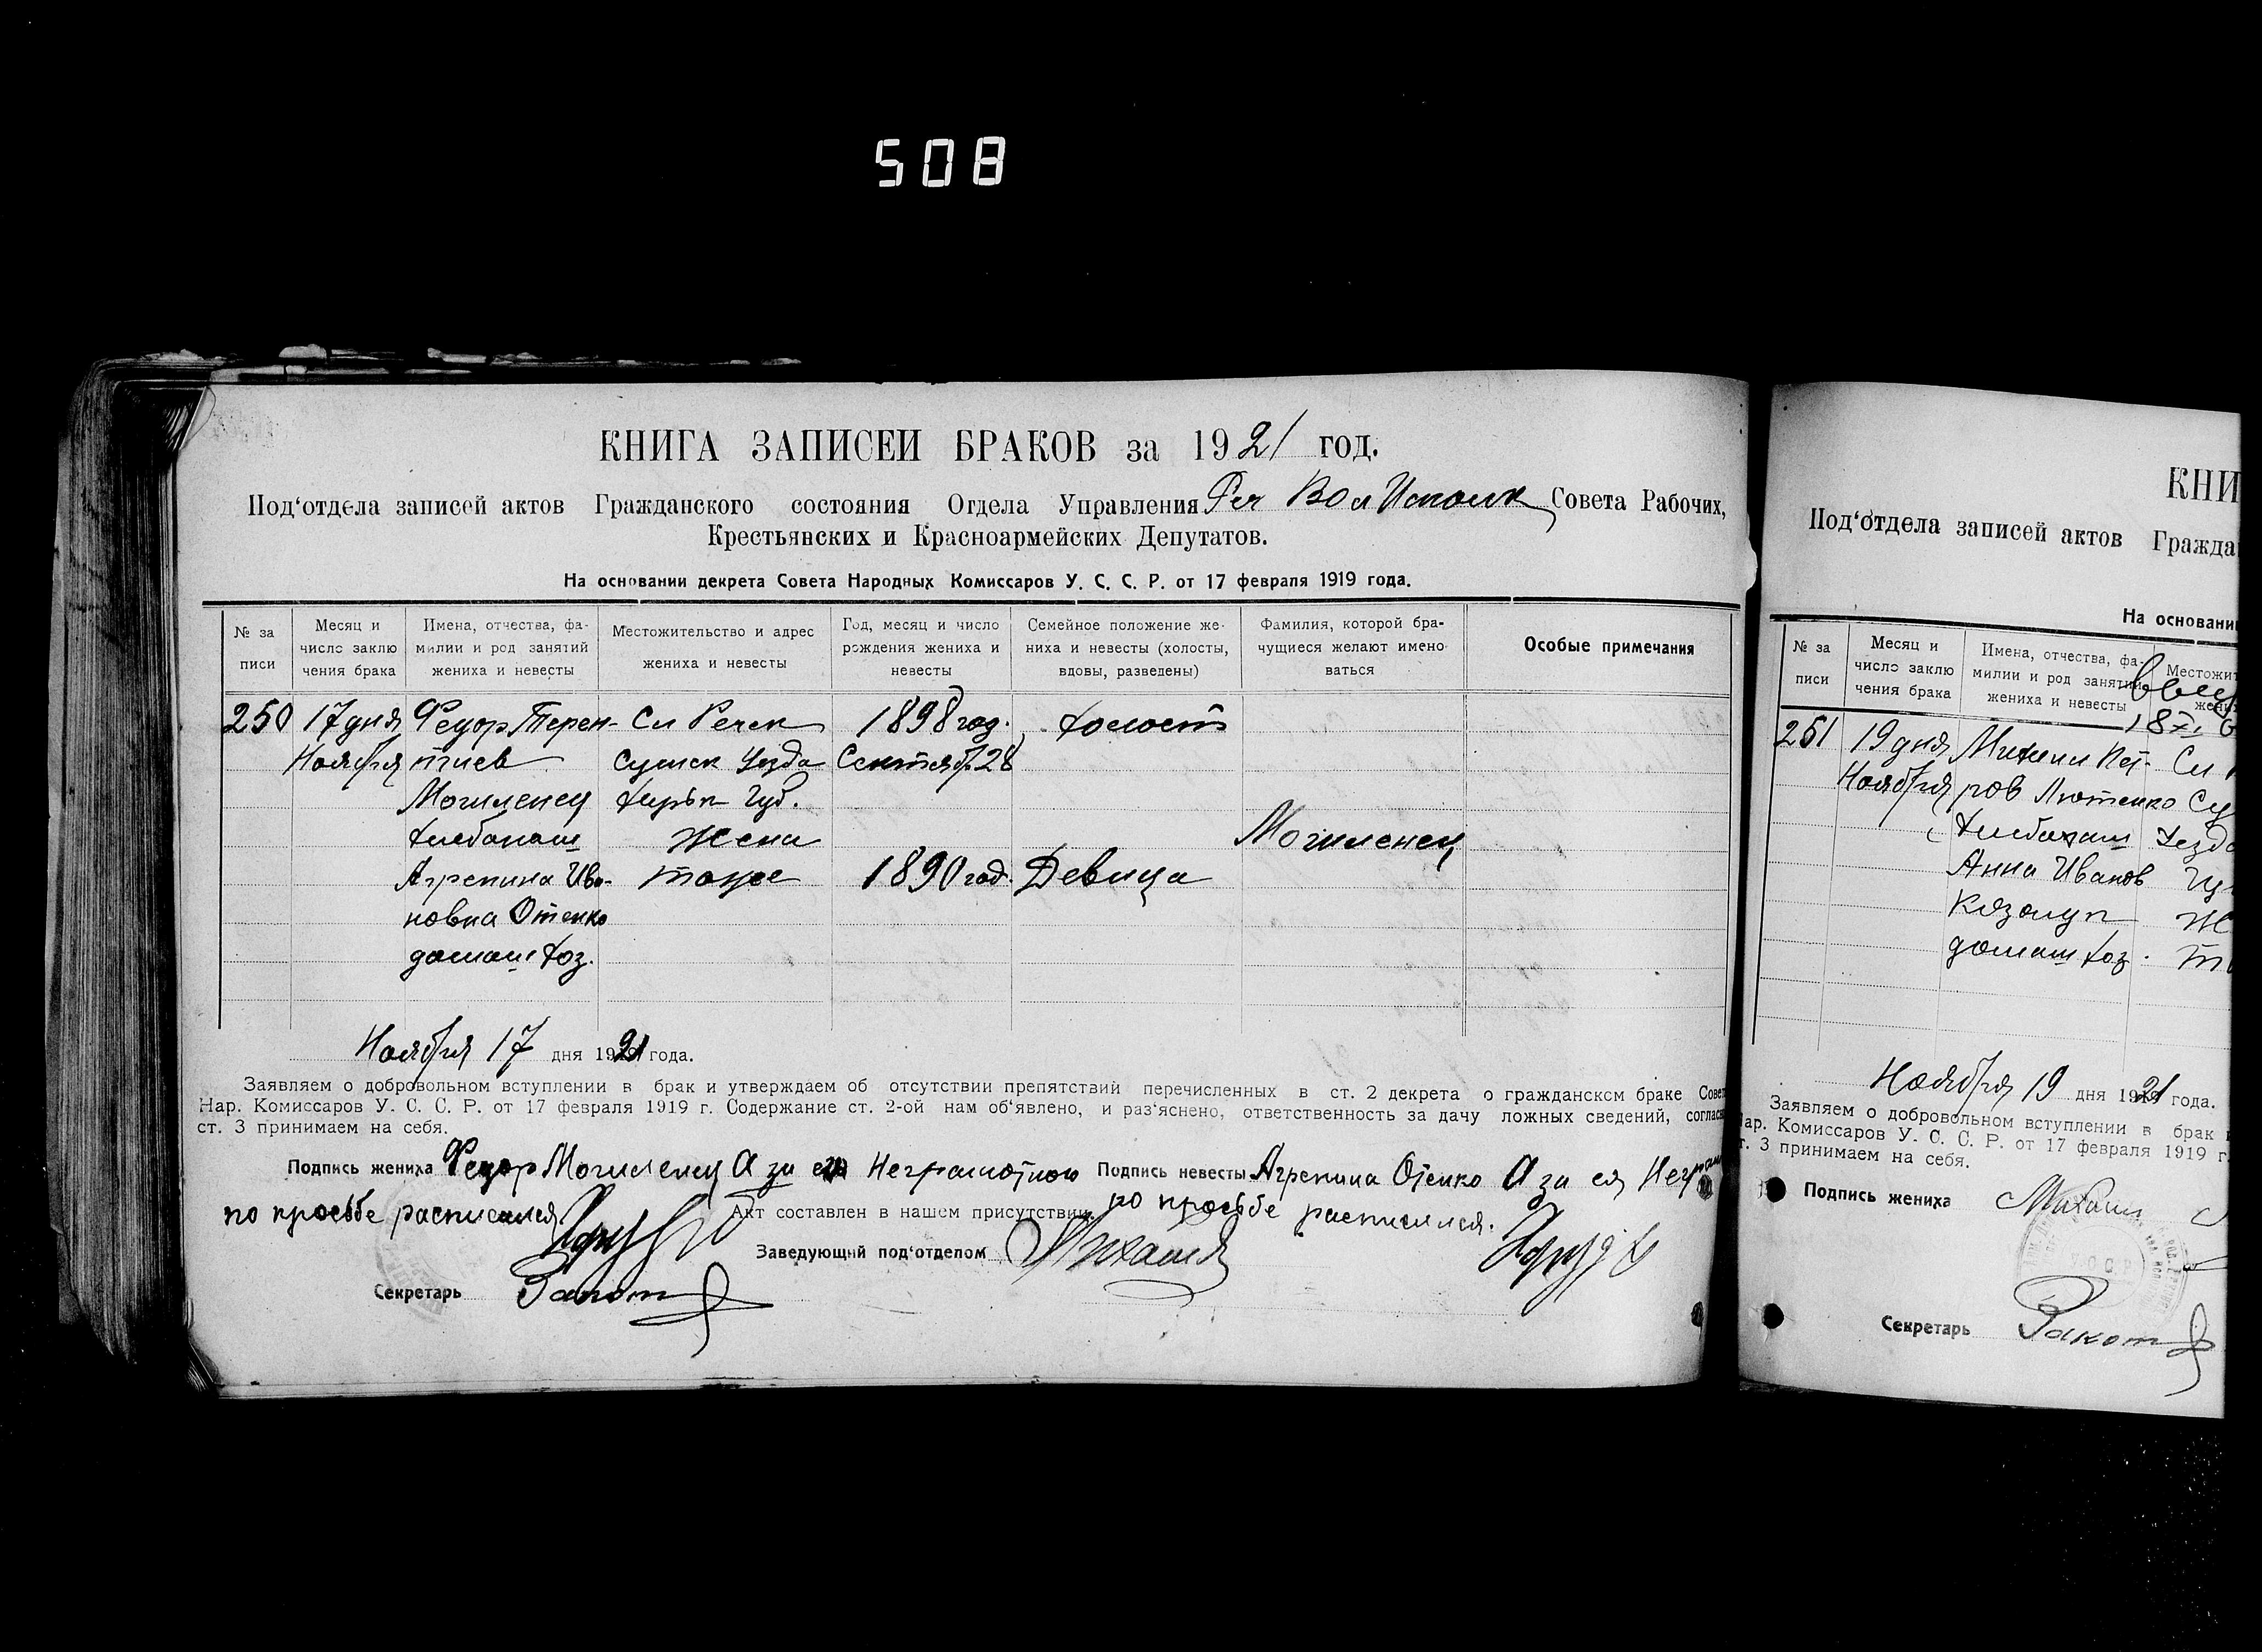 508
КНИГА ЗАПИСЕЙ БРАКОВ за 1921 год.
Под‘отдела записей актов Гражданского состояния Отдела Управления Реч Вол Исполк Совета Рабочих,
Крестьянских и Красноармейских Депутатов.
На основании декрета Совета Народных Комиссаров У. С. С. Р. от 17 февраля 1919 года.
№ за писи
Месяц и число заклю чения брака
Имена, отчества, фа- милии и род занятий жениха и невесты
Местожительство и адрес жениха и невесты
Год, месяц и число рождения жениха и невесты
Семейное положение же- ниха и невесты (холосты, вдовы, разведены)
Фамилия, которой бра- чущиеся желают имено ваться
Особые примечания
250 17 дня Федор Терен- Сл Речк 1898 год. холост
Ноября тиев Сумск Уезда Сентяб. 28
Могиленец Харьк Губ.
хлебопаш Жена Могиленец
Агрепина Ива- тоже 1890 год. Девица
новна Отенко
домаш хоз.
Ноября 17 дня 1921 года.
Заявляем о добровольном вступлении в брак и утверждаем об отсутствии препятствий перечисленных в ст. 2 декрета о гражданском браке Совет
Нар. Комиссаров У. С. С. Р. от 17 февраля 1919 г. Содержание ст. 2-ой нам об‘явлено, и раз‘яснено, ответственность за дачу ложных сведений, соглас
ст. 3 принимаем на себя.
Подпись жениха Федор Могиленец А за Неграмотного Подпись невесты Агрепина Отенко А за ея Неграм
по просьбе расписался Акт составлен в нашем присутствии по просьбе расписался.
Заведующий под‘отделом
Секретарь
КНИ
Под‘отдела записей актов Гражда
На основани
№ за писи
Месяц и число заклю чения брака
Имена, отчества, фа- милии и род занятий жениха и невесты
Местожит жених
251 19 дня Михаил Пет- Сл
Ноября ров Лютенко Су
хлебопаш Уезда
Анна Иванов Гу
Козолуп Ж
домаш хоз. т
Ноября 19 дня 1921 года.
Заявляем о добровольном вступлении в брак
Нар. Комиссаров У. С. С. Р. от 17 февраля 1919 г.
т. 3 принимаем на себя.
Подпись жениха Михаил
Секретарь